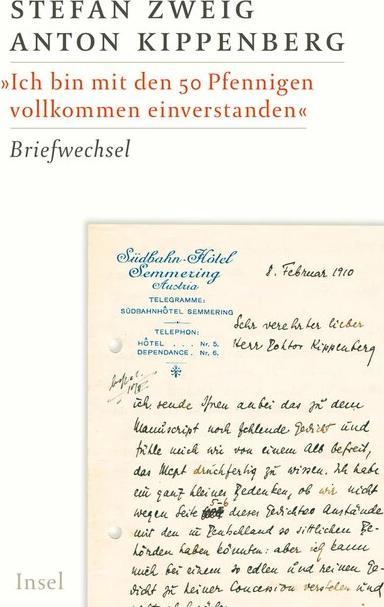 STEFAN ZWEIG
ANTON KIPPENBERG
»Ich bin mit den 50 Pfennigen
vollkommen einverstanden«
Briefwechsel
Südbahn-Hôtel
Semmering
Austria
TELEGRAMME:
SÜDBAHNHÔTEL SEMMERING
TELEPHON:
HÔTEL . . . Nr. 5.
DEPENDANCE. Nr. 6.
8. Februar 1910
Sehr verehrter lieber
Herr Doktor Kippenberg
ich sende Ihnen anbei das zu dem
Manuscript noch fehlende Gedicht und
fühle mich wie von einem Alb befreit,
das Mcpt druckfertig zu wissen. Ich habe
ein ganz kleines Bedenken, ob wir nicht
wegen Seite 5-6 dieses Gedichtes Anstände
mit den in Deutschland so sittlichen Be-
hörden haben könnten: aber ich kann
mich bei einem so edlen und reinen Ge-
dicht zu keiner Concession verstehen und
Insel